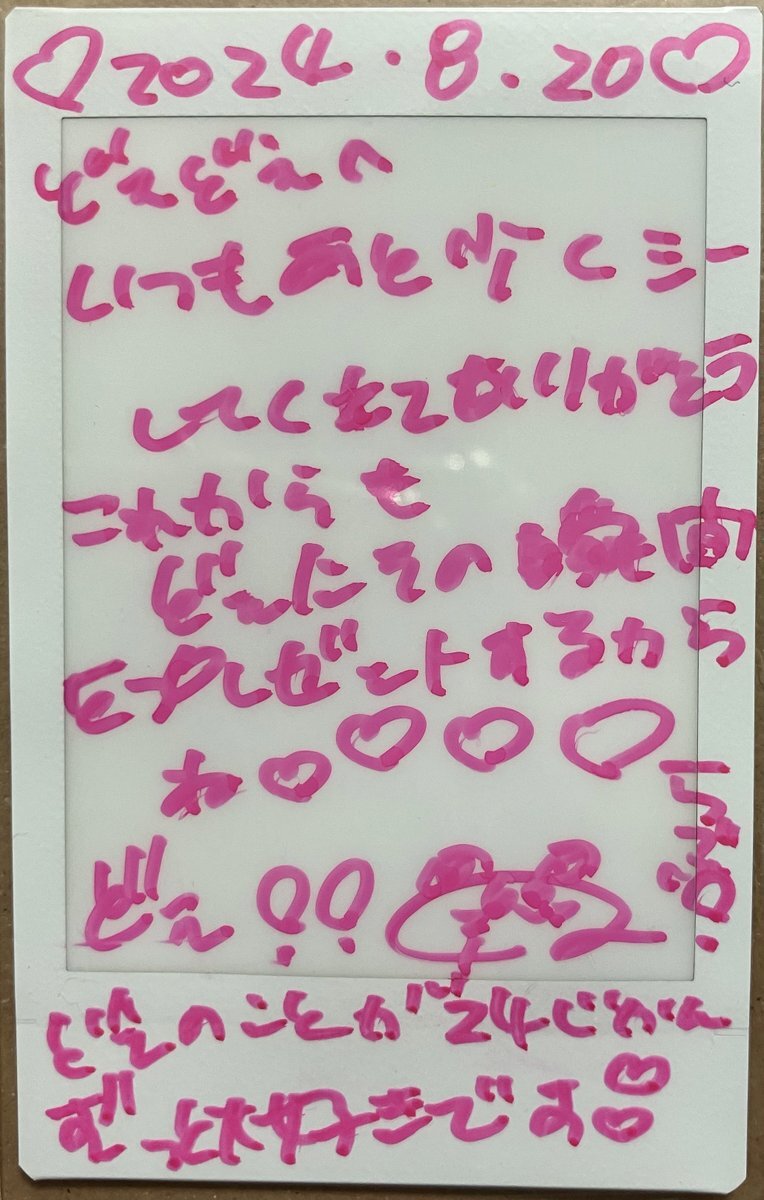 ♡2024.8.20♡
どえどえへ
いつもあと
してくれてありがとう
これからも
どえにその瞬間
をプレゼントするから
ね♡♡♡♡
どえ!!
どえのことが24じかん
ずっと大好きです♡♡